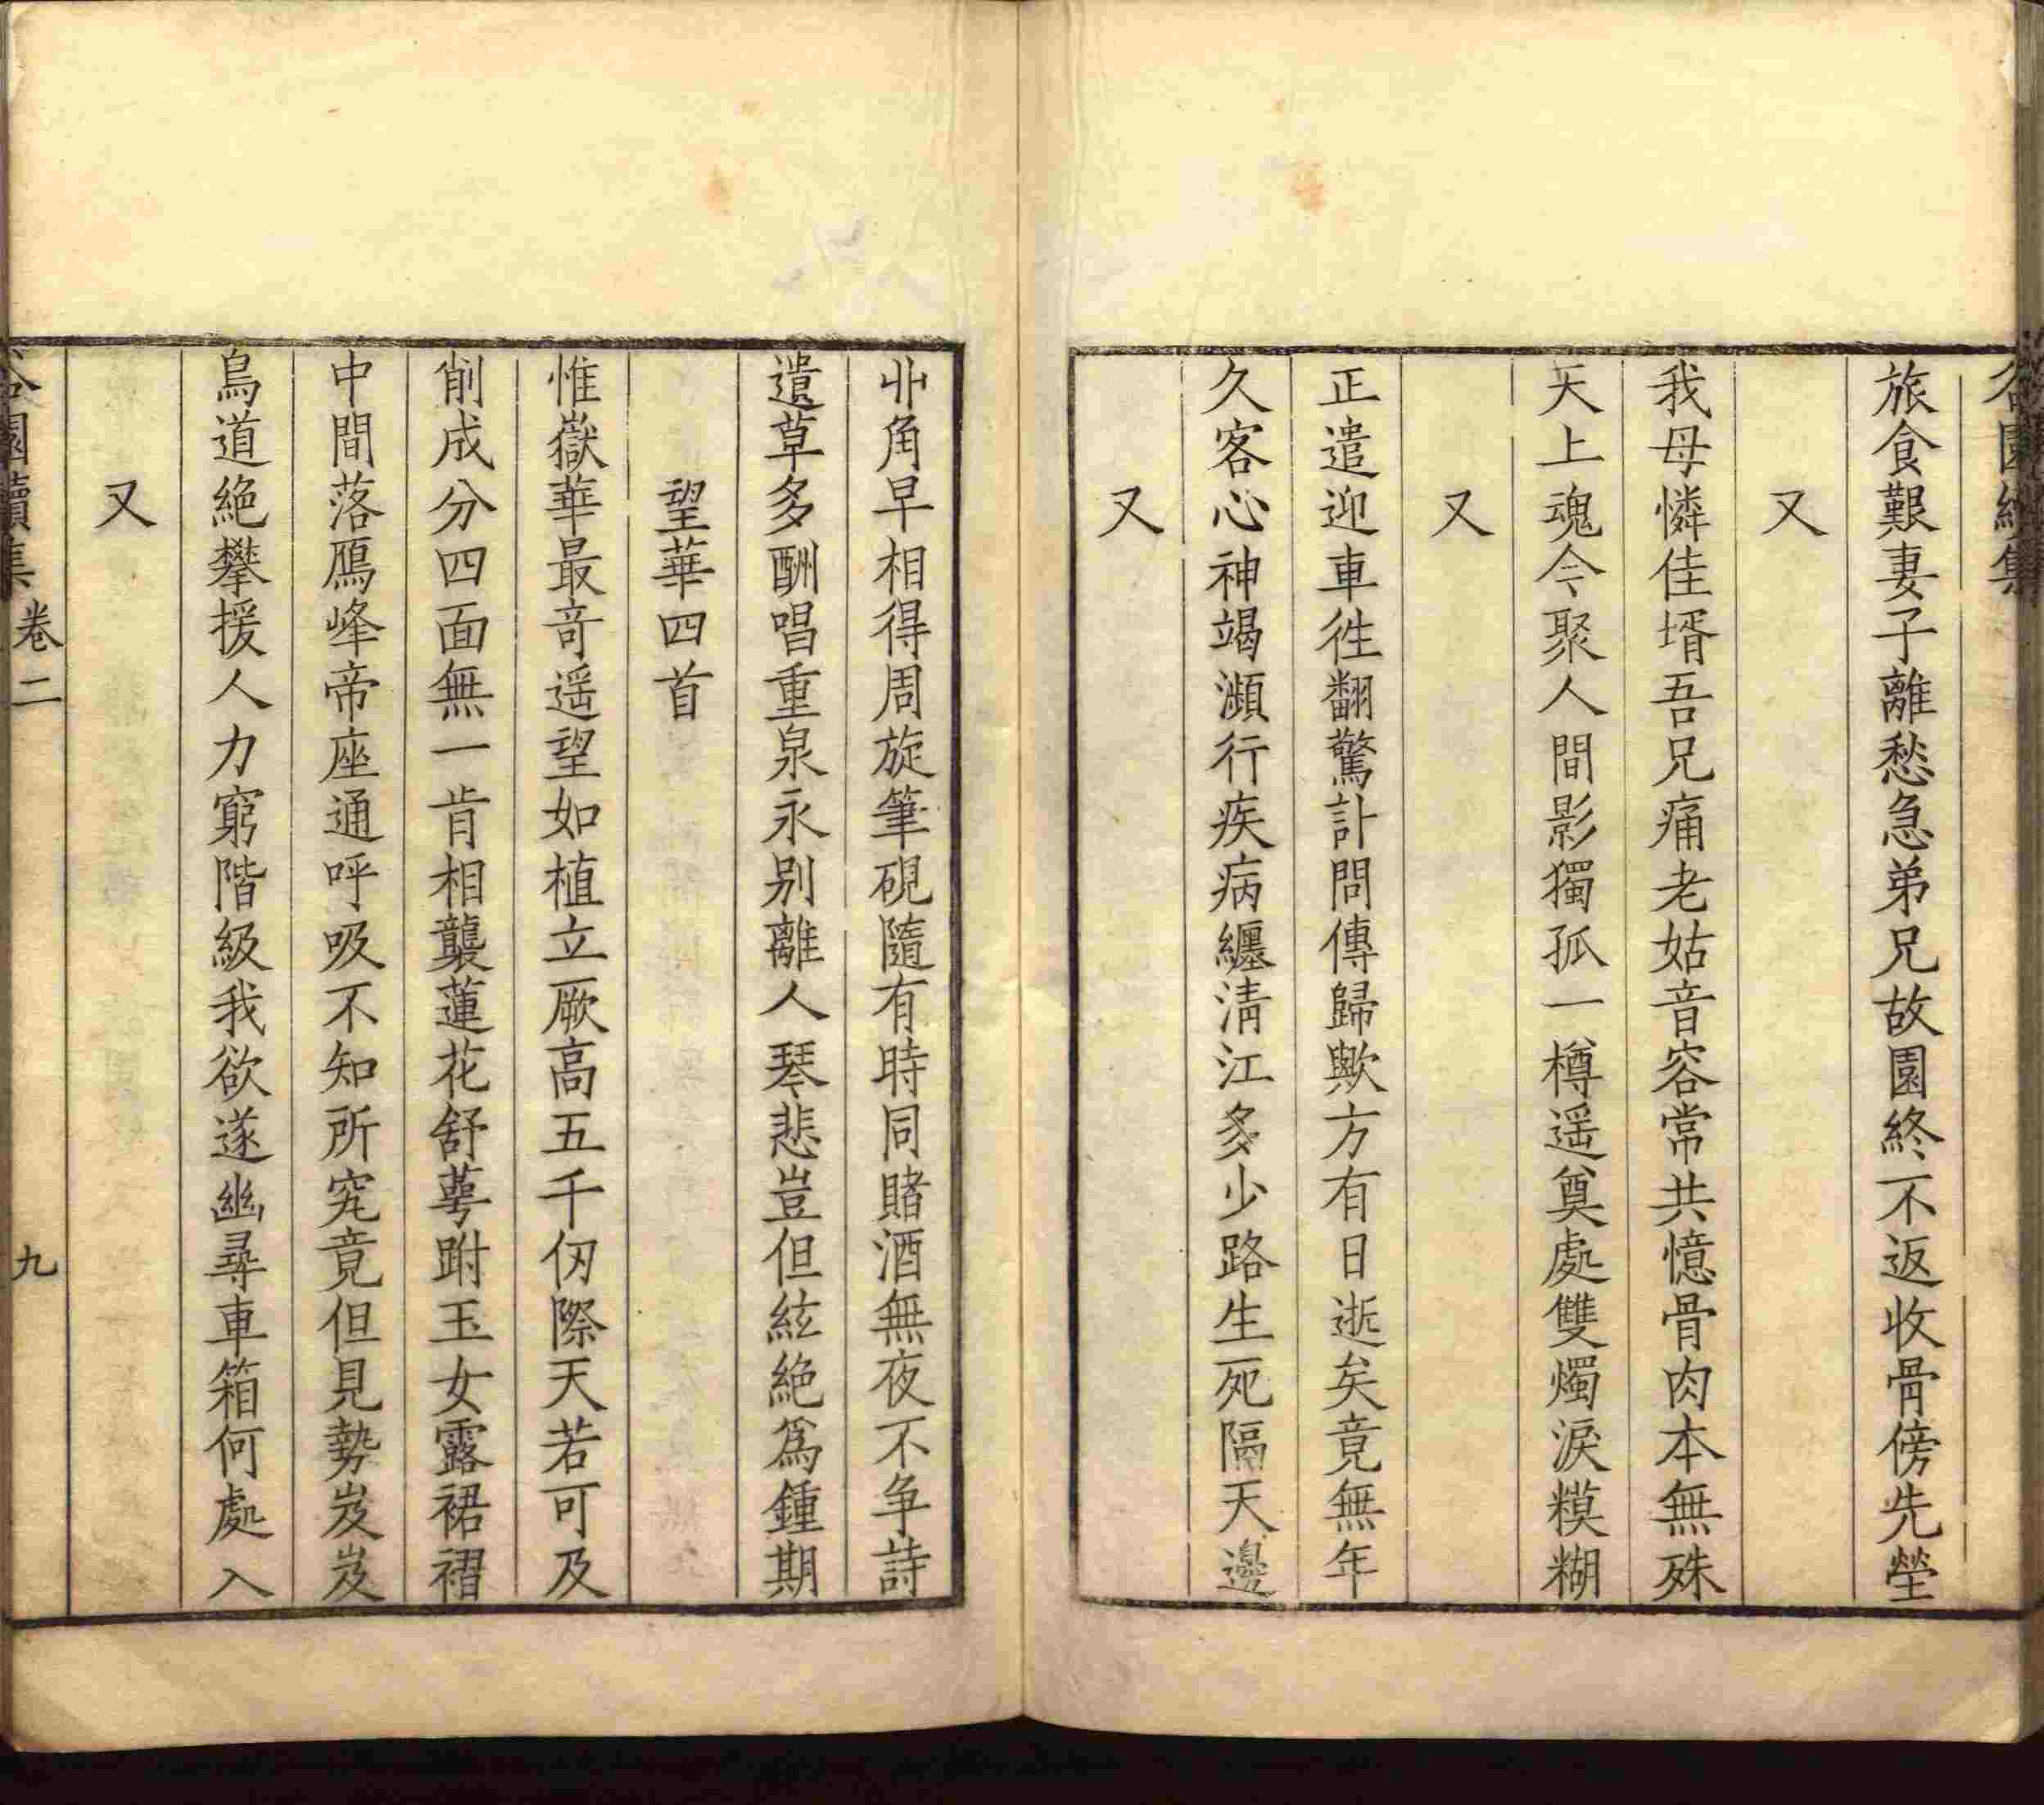 旅食艱妻子離愁急弟兄故園終不返收骨傍先塋
又
我母憐佳壻吾兄痛老姑音容常共憶骨肉本無殊
天上魂今聚人間影獨孤一樽遥奠處雙燭淚糢糊
又
正遣迎車徃翻驚訃問傳歸歟方有日逝矣竟無年
久客心神竭瀕行疾病纏淸江多少路生死隔天邊
又
丱角早相得周旋筆硯隨有時同賭酒無夜不争詩
遺草多酬唱重泉永别離人琴悲豈但絃絶爲鍾期
望華四首
惟嶽華最竒遥望如植立厥高五千仭際天若可及
削成分四面無一肯相襲蓮花舒萼跗玉女露裙褶
中間落鴈峰帝座通呼吸不知所究竟但見勢岌岌
鳥道絶攀援人力窮階級我欲遂幽尋車箱何處入
又
谷園續集 卷二 九